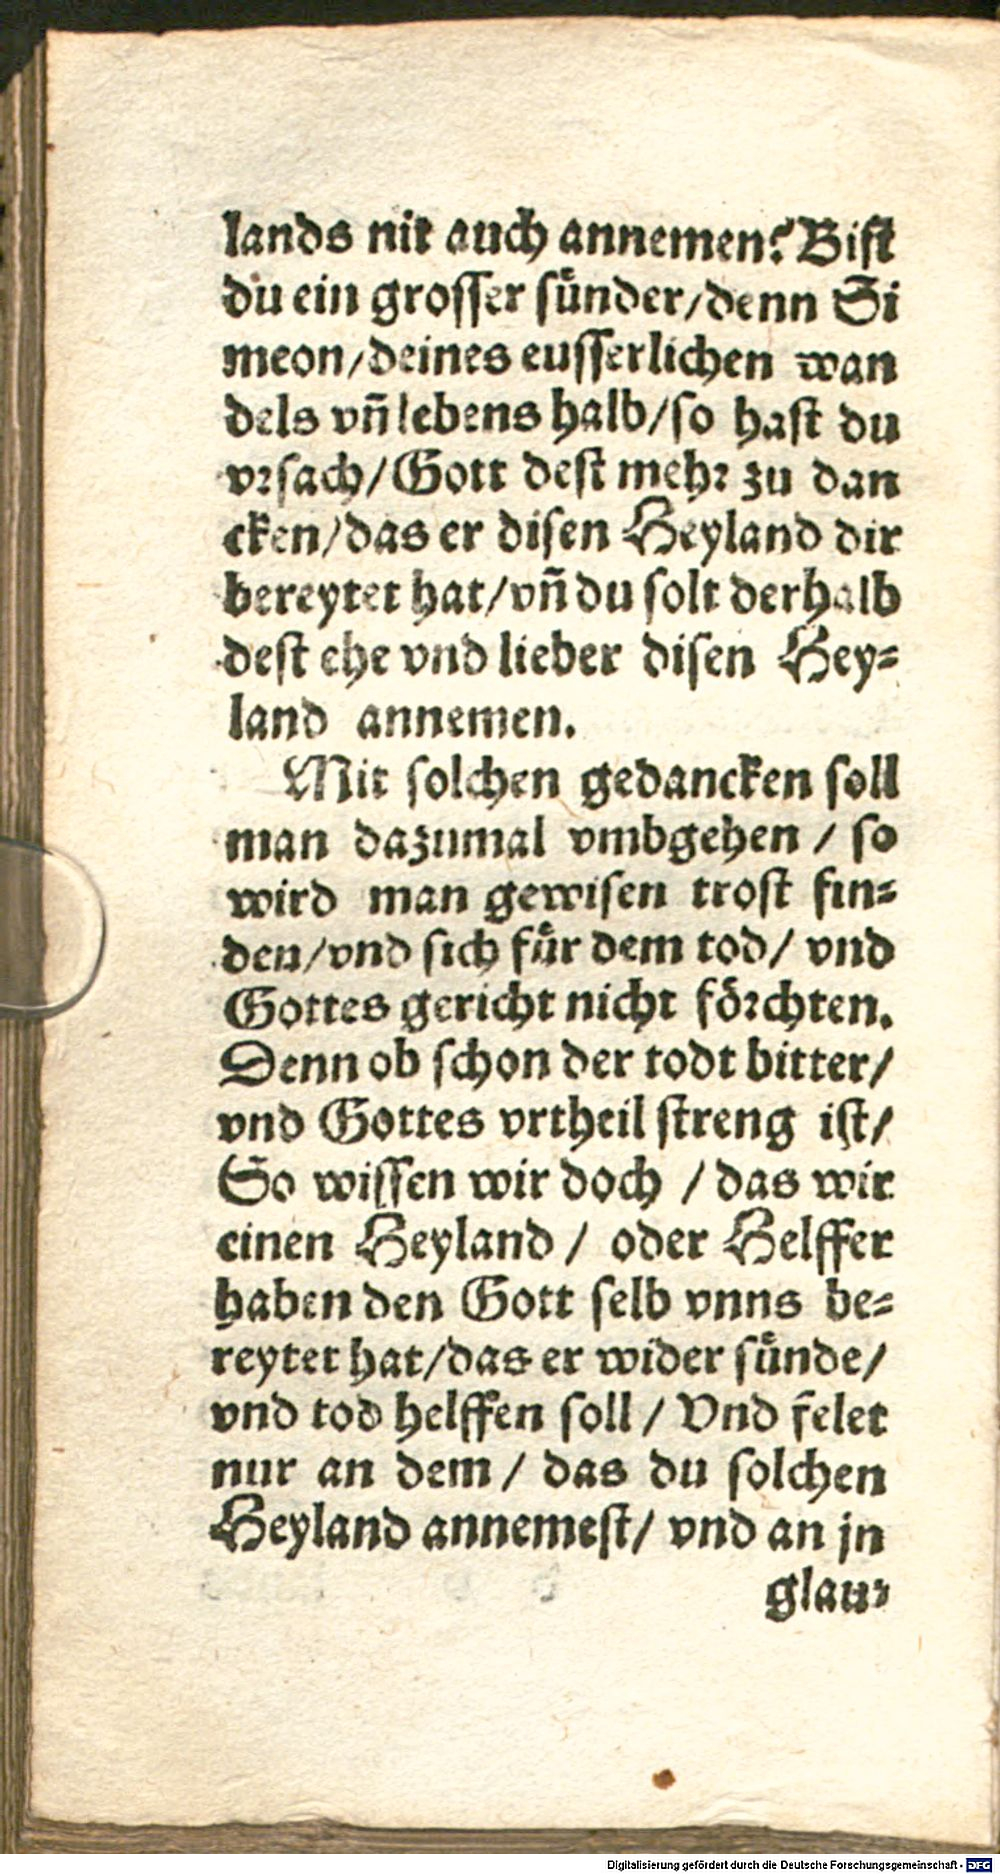 lands nit auch annemen? Bist
du ein grosser sünder/denn Si
meon/deines eusserlichen wan
dels vñ lebens halb/so hast du
vrsach/Gott dest mehr zu dan
cken/das er disen Heyland dir
bereytet hat/vñ du solt derhalb
dest ehe vnd lieber disen Hey=
land annemen.
Mit solchen gedancken soll
man dazumal vmbgehen / so
wird man gewisen trost fin=
den/vnd sich für dem tod/ vnd
Gottes gericht nicht förchten.
Denn ob schon der todt bitter/
vnd Gottes vrtheil streng ist/
So wissen wir doch / das wir
einen Heyland / oder Helffer
haben den Gott selb vnns be=
reytet hat/das er wider sünde/
vnd tod helffen soll / Vnd felet
nur an dem / das du solchen
Heyland annemest/ vnd an jn
glau=
Digitalisierung gefördert durch die Deutsche Forschungsgemeinschaft - DFG